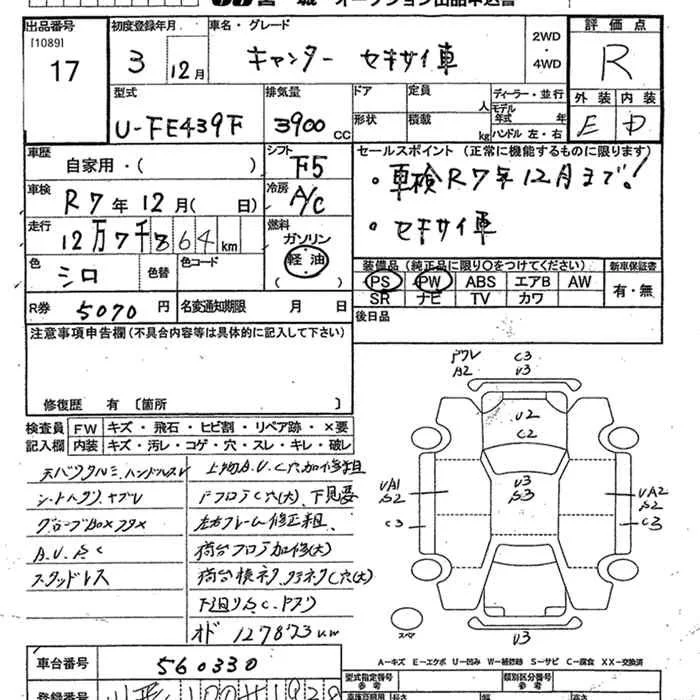 宮城 オークション出品申込書
出品番号 初度登録年月 車名・グレード 2WD・4WD 評価点
[1089]
17 3 12月 キャンター セキサイ車 R
型式 排気量 ドア 定員 人 ディーラー・並行 外装 内装
U-FE439F 3900 CC 形状 積載 kg モデル年式 年 ハンドル 左・右 E D
車歴 自家用・( ) シフト F5 セールスポイント (正常に機能するものに限ります)
車検 R7年12月( 日) 冷房 A/C ・車検R7年12月まで!
走行 12万7千864km 燃料 ガソリン 軽油 ( ) ・セキサイ車
色 シロ 色替 色コード 装備品 (純正品に限り○をつけてください) 新車保証書
PS PW ABS エアB AW 有・無
SR ナビ TV カワ
R券 5070円 名変通知期限 月 日 後日品
注意事項申告欄(不具合内容等は具体的に記入して下さい)
修復歴 有 〔箇所 〕
検査員 FW キズ・飛石・ヒビ割・リペア跡・×要
記入欄 内装 キズ・汚レ・コゲ・穴・スレ・キレ・破レ
シートヘタリ、ヤブレ
グローブBoxフタ×
A.U.S.C
スタッドレス
下見要
左右フレーム修正粗、
荷台フロア加修(大)
下廻りS.C.
オド 127873km
C3
A2 U3
U2
C2
U3
S3
UA1
S2
C3
UA2
S2
C3
スペア
U3
A-キズ E-エクボ U-凹み W-補修跡 S-サビ C-腐食 XX-交換済
車台番号 560330
型式指定番号 参考 類別区分番号 参考
登録番号
長さ